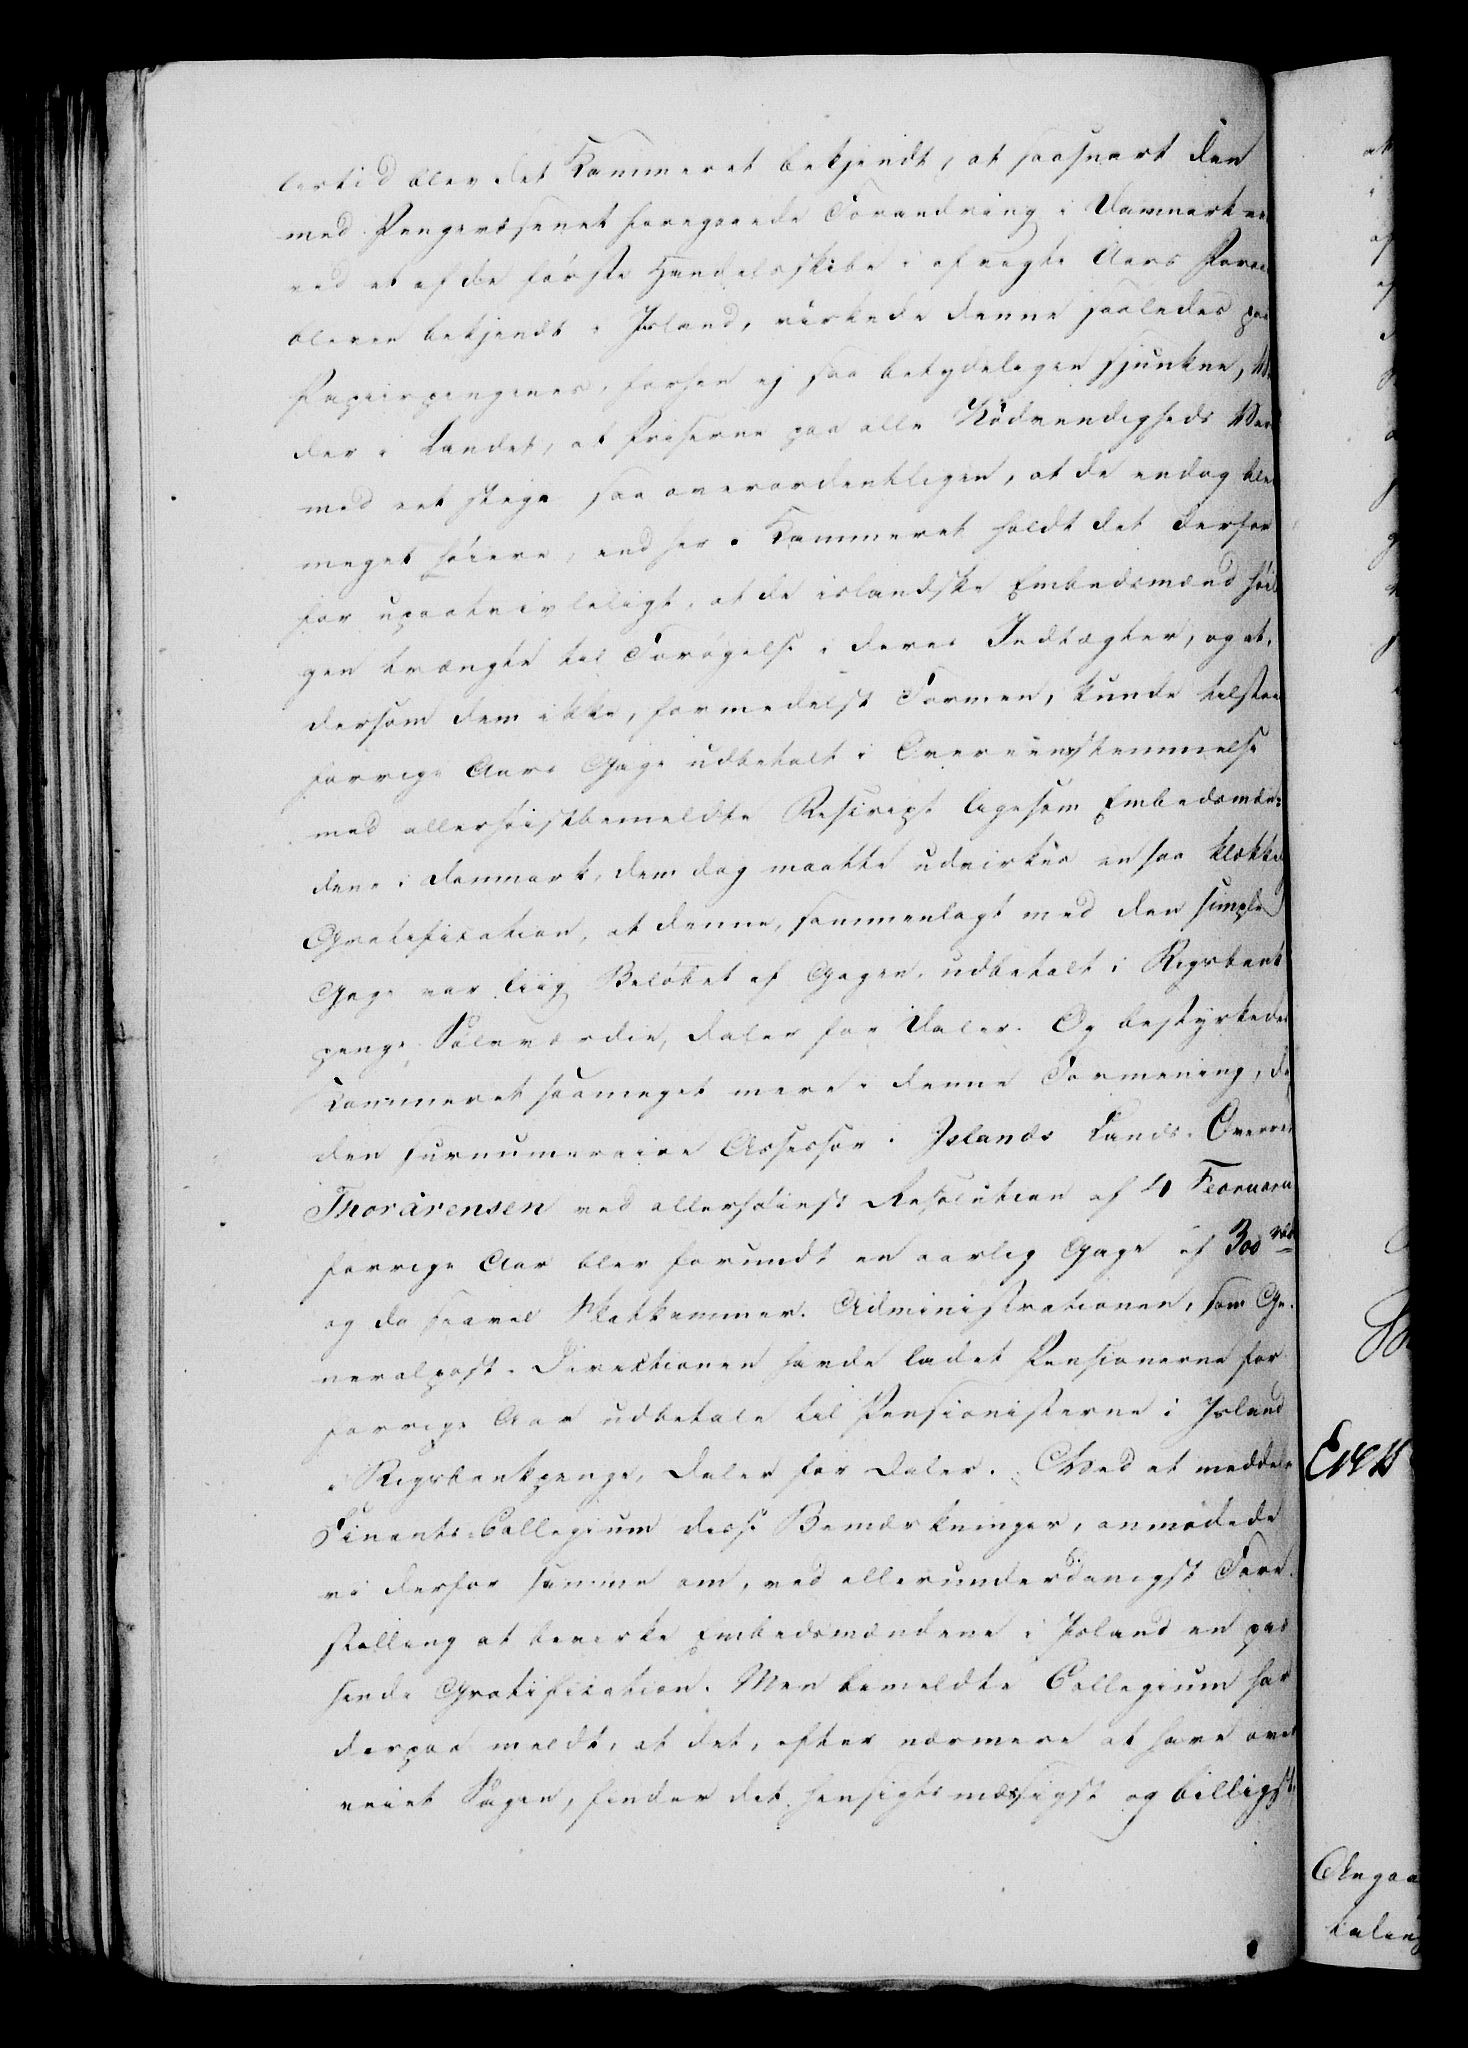 lertid blev det Kammeret bekjendt, at saasnart den
med Pengevæsenet foregaaede Forandring i Danmark var
ved et af de første Handelsskibe i afvigte Aars Foraar
bleven bekjendt i Island, virkede denne saaledes paa
Papirspengenes, forhen ej saa betydeligen sjunkne, Vær
der i Landet, at Priserne paa alle Nødvendigheds Vare
med eet stege saa overordentligen, at de endog blev
meget høiere, end her. Kammeret holdt det derfor
for upaatvivleligt, at de islandske Embedsmænd høili
gen trængte til Forøgelse i deres Indtægter, og at,
dersom dem ikke, formedelst Formen, kunde tilstaaes
forrige Aars Gage udbetalt i Overeensstemmelse
med allerhøistbemeldte Rescript ligesom Embedsmæn-
dene i Danmark, dem dog maatte udvirkes en saa klækkelig
Gratification, at denne, sammenlagt med den simple
Gage var liig Beløbet af Gagen, udbetalt i Rigsbank
penge Sølvværdie, Daler for Daler. Og bestyrkedes
Kammeret saameget mere i denne Formening, da
den surnumeraire Assessor i Islands Lands-Overret
Thorarensen ved allerhøieste Resolution af 4 Februarii
forrige Aar blev forundt en aarlig Gage af 300 rbd
og da saavel Skatkammer-Administrationen, som Ge-
neralpost-Direktionen havde ladet Pensionerne for
forrige Aar udbetale til Pensionisterne i Island
i Rigsbankpenge, Daler for Daler. Ved at meddele
Finants-Collegium disse Bemærkninger, anmodede
vi derfor samme om, ved allerunderdanigst Fore-
stilling at bevirke Embedsmændene i Island en pas
sende Gratification. Men bemeldte Collegium har
derpaa meldt, at det, efter nærmere at have over
veiet Sagen, finder det hensigtsmæssigst og billigst,